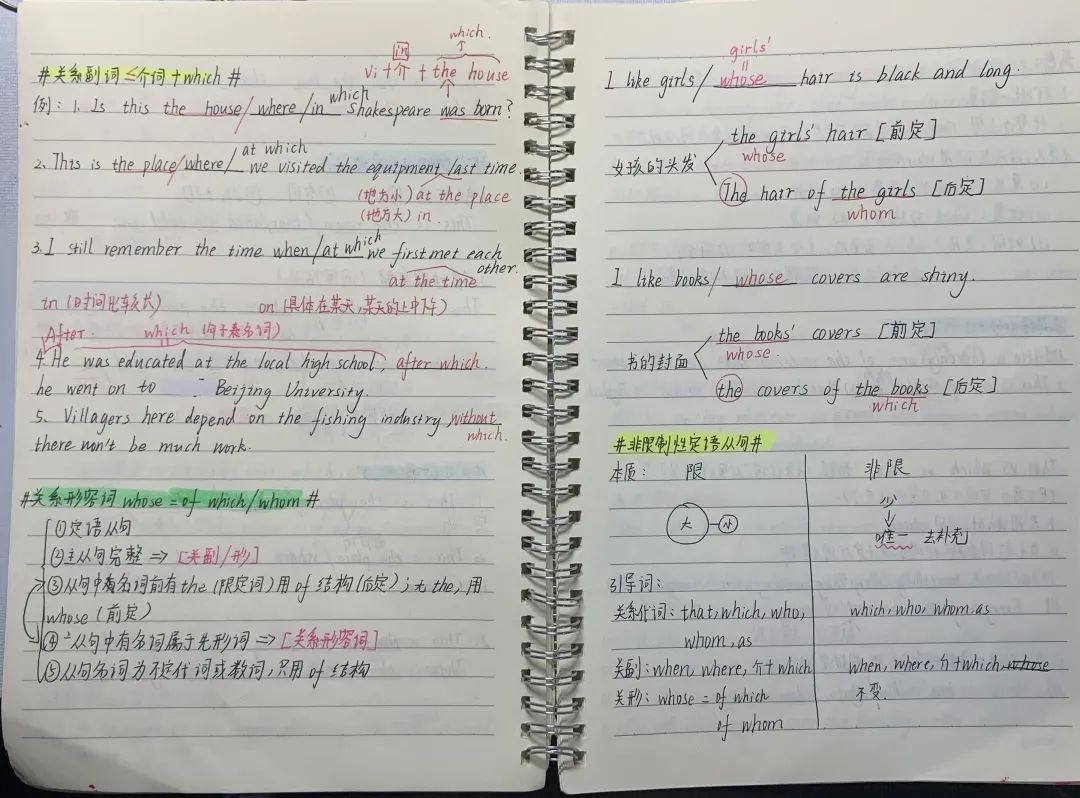 which.
in
#关系副词≤介词+which#
vi+介+the house
例: 1. Is this the house/where/in which Shakespeare was born?
at which
2. This is the place/where/ we visited the equipment last time.
(地方小) at the place
(地方大) in.
3. I still remember the time when/at which we first met each other.
at the time
in (时间比较长) on (具体在某天,某天的上中下午)
After. which (句子裹名词)
4. He was educated at the local high school, after which.
he went on to Beijing University.
5、Villagers here depend on the fishing industry, without which.
there won't be much work.
#关系形容词 whose = of which/whom #
①定语从句
②主从句完整 ⇒ [关副/形]
③从句中有名词前有the(限定词)用of结构(后定);无the,用
whose(前定)
④从句中有名词属于先形词 ⇒ [关系形容词]
⑤从句名词为不定代词或数词,只用of结构
girls'
I like girls/ whose hair is black and long.
the girls' hair [前定]
whose
女孩的头发
The hair of the girls [后定]
whom
I like books/ whose covers are shiny.
the books' covers [前定]
whose.
书的封面
the covers of the books [后定]
which
#非限制性定语从句#
本质: 限 非限
大 小
少
唯一 去补充
引导词:
关系代词: that, which, who, which, who, whom.as
whom, as
关副: when, where, 介+which when, where, 介+which, whose
关形: whose = of which 不变.
of whom